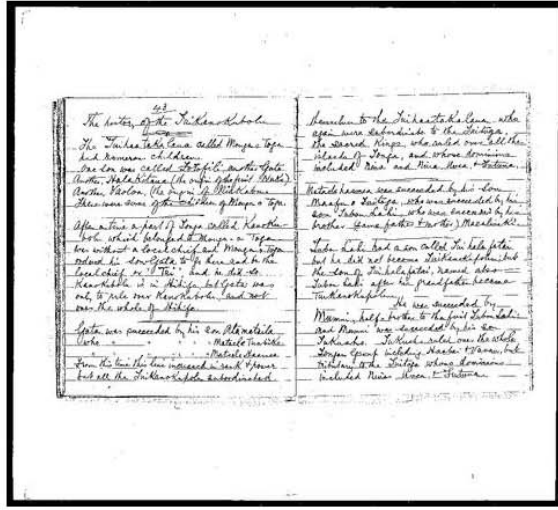 43
The history of the Tuikanokubolu
The Tuihaatakalaua called Mounga a Toga
had numerous children.
One son was called Fotofili, another Gata
Another, Halakitaua, (the origin of the first
Another Vaoloa, (the origin of Niukabu
These were some of the children of Mounga a Toga.
After a time a part of Tonga called Kanoku-
bolu which belonged to Mounga a Toga
was without a local chief and Mounga a Toga
ordered his son Gata to go there and be the
local chief or "Tui", and he did so.
Kanokubolu is in Hihifo, but Gata was
only to rule over Kanokubolu, and not
over the whole of Hihifo.
Gata was succeeded by his son Atamataila
who " " " " Mataele Tuabiko
" " " " Mataele Haamea
From this time this line increased in rank & power
but all the Tuikanokubolu subordinated
themselves to the Tuihaatakalaua, who
again were subordinate to the Tuitoga,
the sacred Kings who ruled over all the
islands of Tonga, and whose dominions
included Niua and Niue, Uvea, & Futuna.
Mataelehaamea was succeeded by his son
Maafu a Tuitoga, who was succeeded by his
son Tubou Lahi, who was succeeded by his
brother (same father & mother) Maealiuaki.
Tubou Lahi had a son called Tuihalafatai
but he did not become Tuikanokubolu, but
the son of Tuihalafatai, named also
Tubou Lahi after his grandfather became
Tuikanokubolu.
He was succeeded by
Mumui, half brother to the first Tubou Lahi
and Mumui was succeeded by his son
Tukuaho. Tukuaho ruled over the whole
Tongan Group including Haabai & Vavau, but
tributary to the Tuitoga whose dominions
included Niua, Uvea, & Futuna.